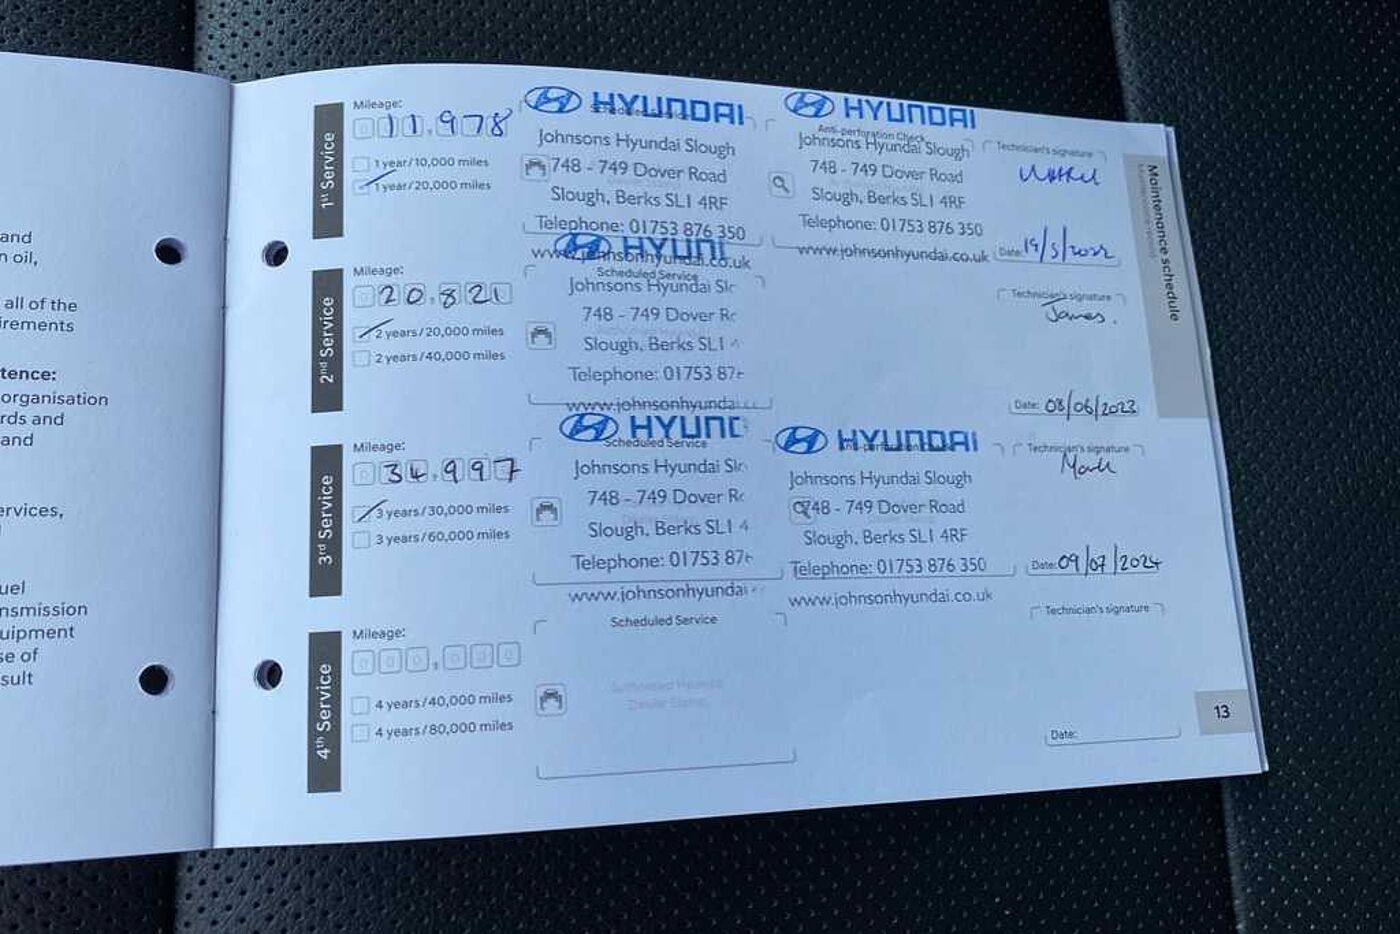 and
n oil,
all of the
irements
tence:
organisation
rds and
and
ervices,
uel
nsmission
uipment
se of
sult
1st Service
Mileage:
11,978
1 year/10,000 miles
1 year/20,000 miles
HYUNDAI
Johnsons Hyundai Slough
748 - 749 Dover Road
Slough, Berks SL1 4RF
Telephone: 01753 876 350
www.johnsonhyundai.co.uk
HYUNDAI
Anti-perforation Check
Johnsons Hyundai Slough
748 - 749 Dover Road
Slough, Berks SL1 4RF
Telephone: 01753 876 350
www.johnsonhyundai.co.uk
Technician's signature
Date: 19/5/2022
2nd Service
Mileage:
20,821
2 years/20,000 miles
2 years/40,000 miles
HYUNI
Scheduled Service
Johnsons Hyundai Slo
748 - 749 Dover Ro
Slough, Berks SL1 4
Telephone: 01753 876
www.johnsonhyundai.c
Technician's signature
James.
Date: 08/06/2023
3rd Service
Mileage:
34,997
3 years/30,000 miles
3 years/60,000 miles
HYUND
Scheduled Service
Johnsons Hyundai Slo
748 - 749 Dover Ro
Slough, Berks SL1 4
Telephone: 01753 876
www.johnsonhyundai
HYUNDAI
Johnsons Hyundai Slough
748 - 749 Dover Road
Slough, Berks SL1 4RF
Telephone: 01753 876 350
www.johnsonhyundai.co.uk
Technician's signature
Mark
Date: 09/07/2024
4th Service
Mileage:
000,000
4 years/40,000 miles
4 years/80,000 miles
Scheduled Service
Authorised Hyundai
Dealer Stamp
Technician's signature
Date:
Maintenance schedule
13